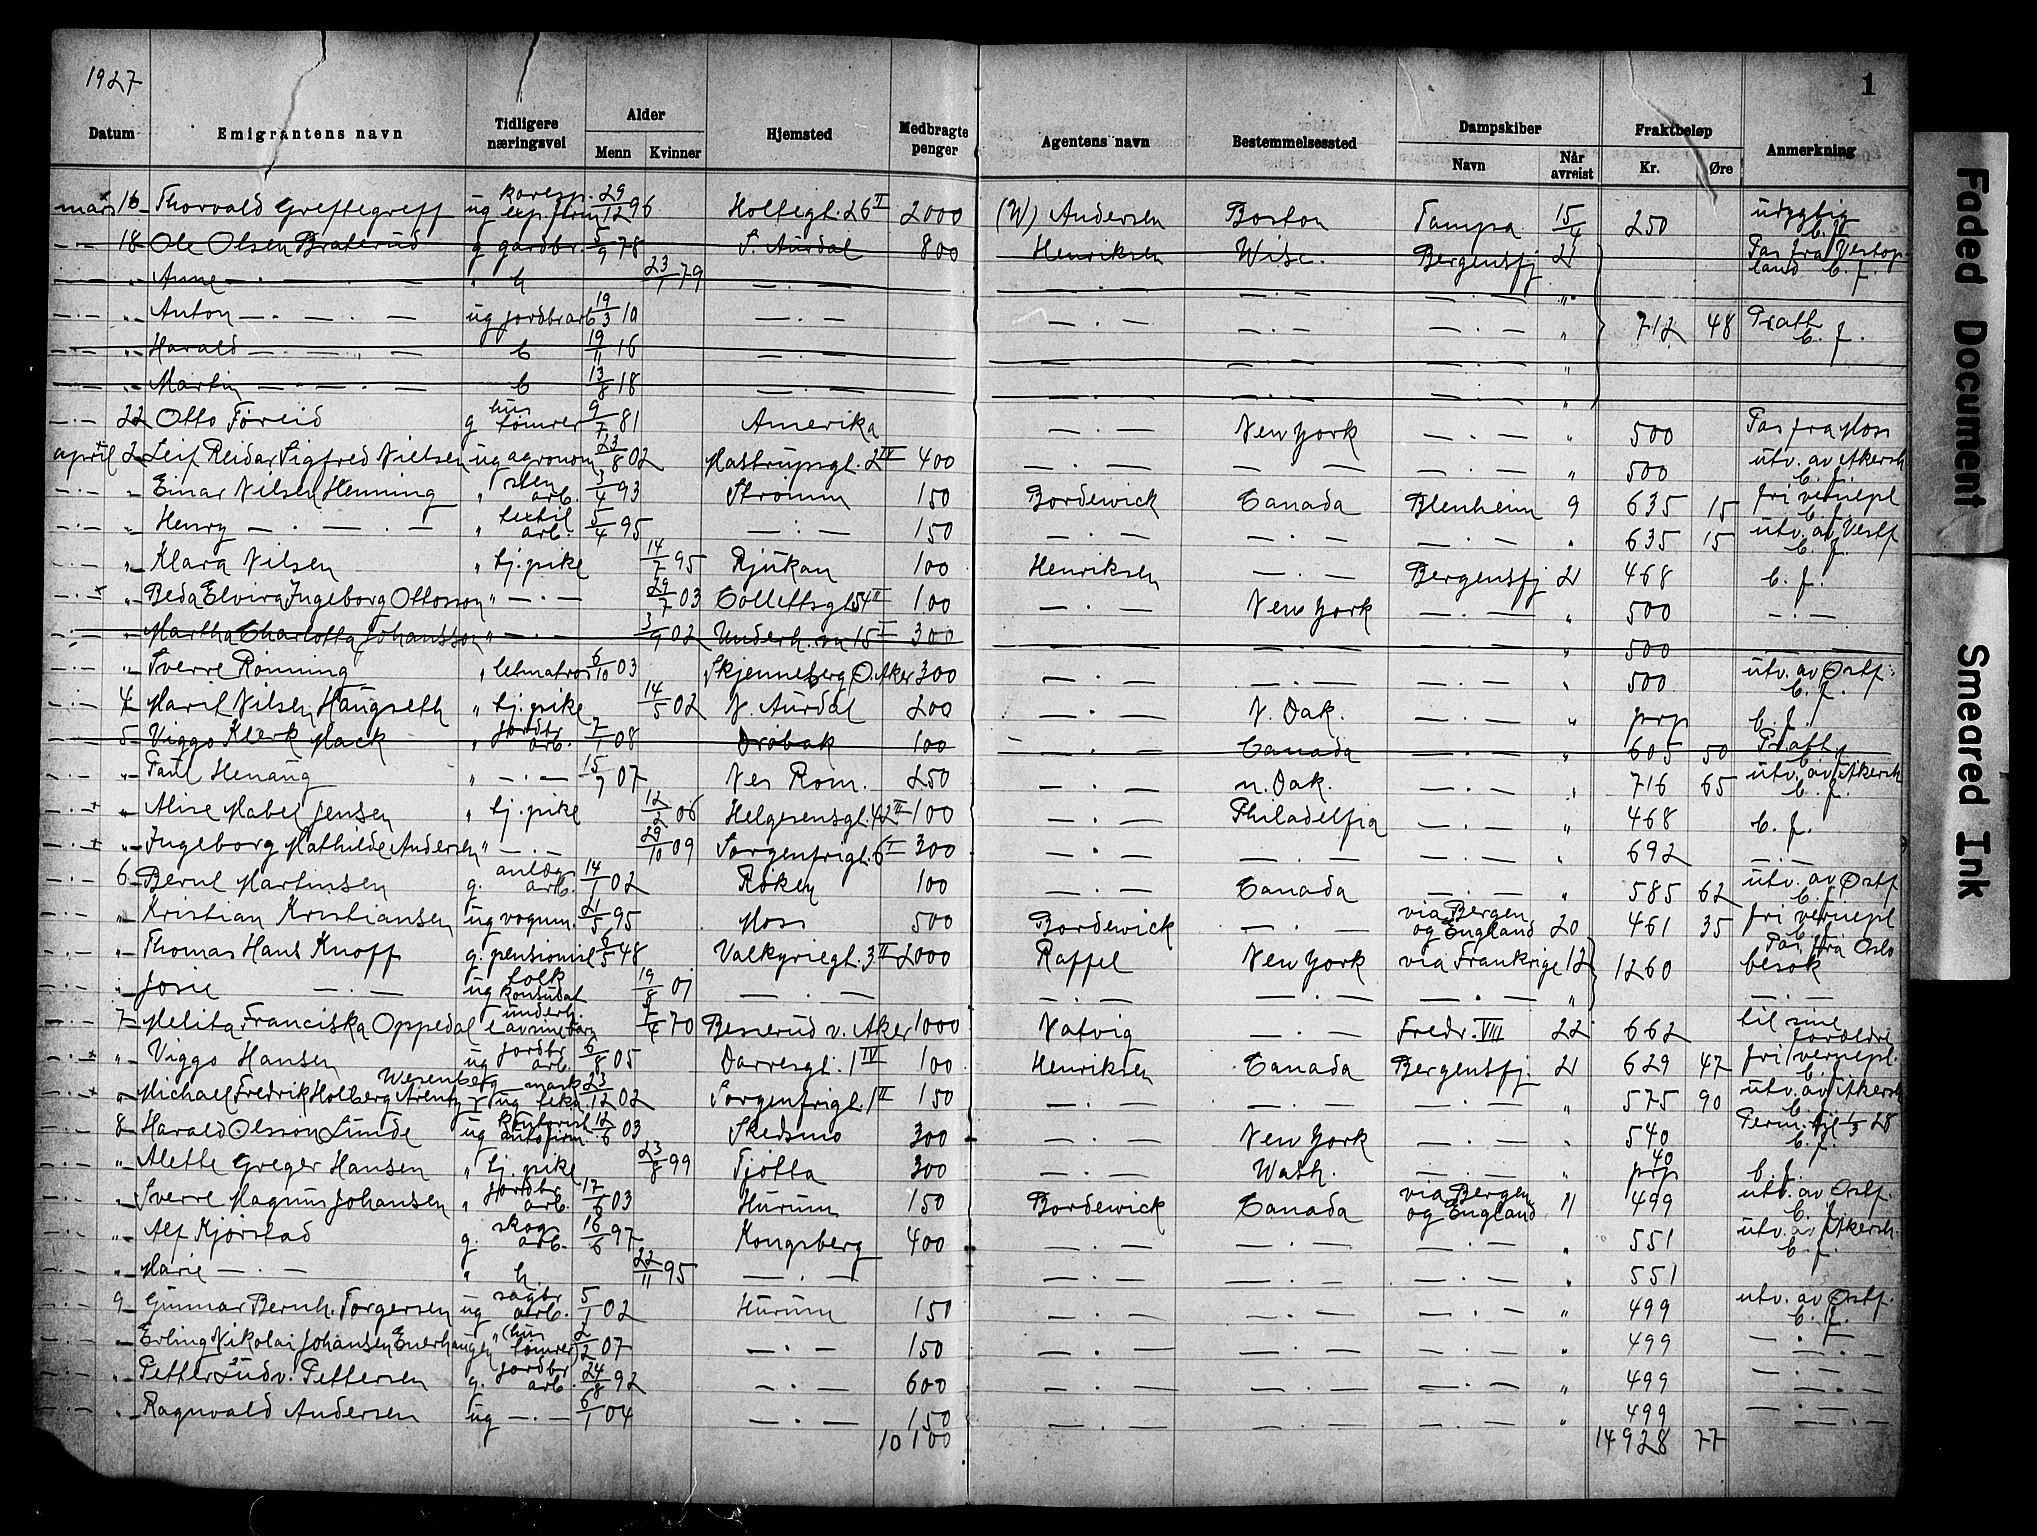 1927
1
Datum Emigrantens navn Tidligere næringsvei Alder Menn Kvinner Hjemsted Medbragte penger Agentens navn Bestemmelsessted Dampskiber Navn Når avreist Fraktbeløp Kr. Øre Anmerkning
mars 16 Thorvald Greftegreff ug 29/12 96 Holtegt. 26 II 2000 (W) Andersen Boston Tampa 15/4 250 udygtig
— 18 Ole Olsen Braterud g gardbr. 5/9 78 S. Aurdal 800 Henriksen Wisc. Bergensfj 21 Pas fra Vestop-
— „ Anne — . — „ h 23/1 79 — . — — . — — . — — . — „ land b. f.
— „ Anton — . — . — ug jordbrarb 19/3 10 — . — — . — — . — — . — „ 712 48 b. f.
— „ Harald — . — . — b 19/11 16 — . — „
— „ Martin — . — . — b 13/8 18 — . — — . — — . — — . — „
— 22 Otto Føreid g hus tømrer 9/7 81 Amerika — . — New York — . — „ 500 Pas fra Moss
april 2 Leif Reidar Sigfred Nielsen ug agronom 23/8 02 Mastrupsgt. 2 IV 400 — . — — — — . — „ 500 utv. av Akersh b. f.
— „ Einar Nilsen Henning „ sten arb. 3/4 93 Strømm 150 Bordewick Canada Blenheim 9 635 15 fri vernepl b. f.
— „ Henry — . — . — „ textil arb. 5/4 95 — . — 150 — . — — . — — . — „ 635 15 utv. av Vestf b. f.
— „ Klara Nilsen „ tj. pike 14/7 95 Rjukan 100 Henriksen — . — Bergensfj 21 468 b. f.
— + „ Beda Elvira Ingeborg Ottosson „ — . — 29/7 03 Collettsgt 54 II 100 — . — New York — . — „ 500 — . —
— „ Martha Charlotta Johansson „ — . — 3/9 02 Underh. vn 15 I 300 — . — — . — — . — „ 500
— „ Sverre Rønning „ letmatros 6/10 03 Skjenneberg Ø. Aker 300 — . — — . — — . — „ 500 utv. av Østf. b. f.
— 4 Marit Nilsen Haugseth „ tj. pike 14/5 02 N. Aurdal 200 — . — N. Dak. — . — „ prp b. f.
— 5 Viggo Klerk Mack „ jordbr arb. 7/1 08 Drøbak 100 — . — Canada — . — „ 605 50
— „ Paul Henaug „ — . — 15/7 07 Nes Rom. 250 — . — n. Dak. — . — „ 716 65 utv. av Akersh b. f.
— + „ Alise Mabel Jensen „ tj. pike 12/2 06 Helgesensgt. 42 II 100 — . — Philadelfia — . — „ 468 b. f.
— + „ Ingeborg Mathilde Andersen „ — . — 29/10 09 Sorgenfrigt. 6 I 300 — . — — . — — . — „ 692 — . —
— 6 Bernt Martinsen g. anlegs arb. 14/1 02 Røken 100 — . — Canada — . — „ 585 62 utv. av Østf b. f.
— „ Kristian Kristiansen ug vognm. 21/5 95 Moss 500 Bordewick — . — via Bergen og England 20 461 35 fri vernepl b. f.
— „ Thomas Hans Knoff g. pensionist 6/5 48 Valkyriegt. 3 II 2000 Raffel New York via Frankrige 12 1260 Pas fra Oslo besøk
— „ Josie — . — ug tolk konsulat 19/8 07 — . — — . — — . — — . — „ — . —
— 7 Melita Franciska Oppedal 5/4 70 Besserud v. Aker 1000 Natvig — . — Fredr. VIII 22 662 til sine foreldre
— + „ Viggo Hansen ug jordbr arb. 6/8 05 Darresgt. 1 IV 100 Henriksen Canada Bergensfj. 21 629 47 fri vernepl. b. f.
— + „ Michael Fredrik Holberg Arentz Wesenberg ug mask tekn. 23/12 02 Sorgenfrigt. 1 II 150 — . — — . — — . — „ 575 90 utv. av Akersh b. f.
— 8 Harald Olsson Lunde ug autofirm 12/6 03 Skedsmo 300 — . — New York — . — „ 540 Perm. til 1/3 28 b. f.
— „ Alette Greger Hansen „ tj. pike 23/8 99 Tjøtta 300 — . — Wash. — . — „ 40 prp b. f.
— „ Sverre Magnus Johansen „ jordbr arb. 17/6 03 Hurum 150 Bordewick Canada via Bergen og England 11 499 utv. av Østf. b. f.
— „ Alf Kjørstad g. skog arb. 16/6 97 Kongsberg 400 — . — — . — — . — „ 551 utv. av Akersh. b. f.
— „ Marie — . — „ h. 22/11 95 — . — — . — — . — — . — „ 551
— 9 Gunnar Bernh. Torgersen ug sagbr arb. 5/1 02 Hurum 150 — . — — . — — . — „ 499 utv. av Østf. b. f.
— „ Erling Nikolai Johansen Enerhaugen „ (hus tømrer) 2/2 07 — . — 150 — . — — . — — . — „ 499 — . —
— „ Petter Ludv. Pettersen g. jordbr arb. 24/8 92 — . — 600 — . — — . — — . — „ 499 — . —
— „ Ragnvald Andersen ug — . — 6/1 04 — . — 150 — . — — . — — . — „ 499 — . —
10100 14928 77
Faded Document
Smeared Ink